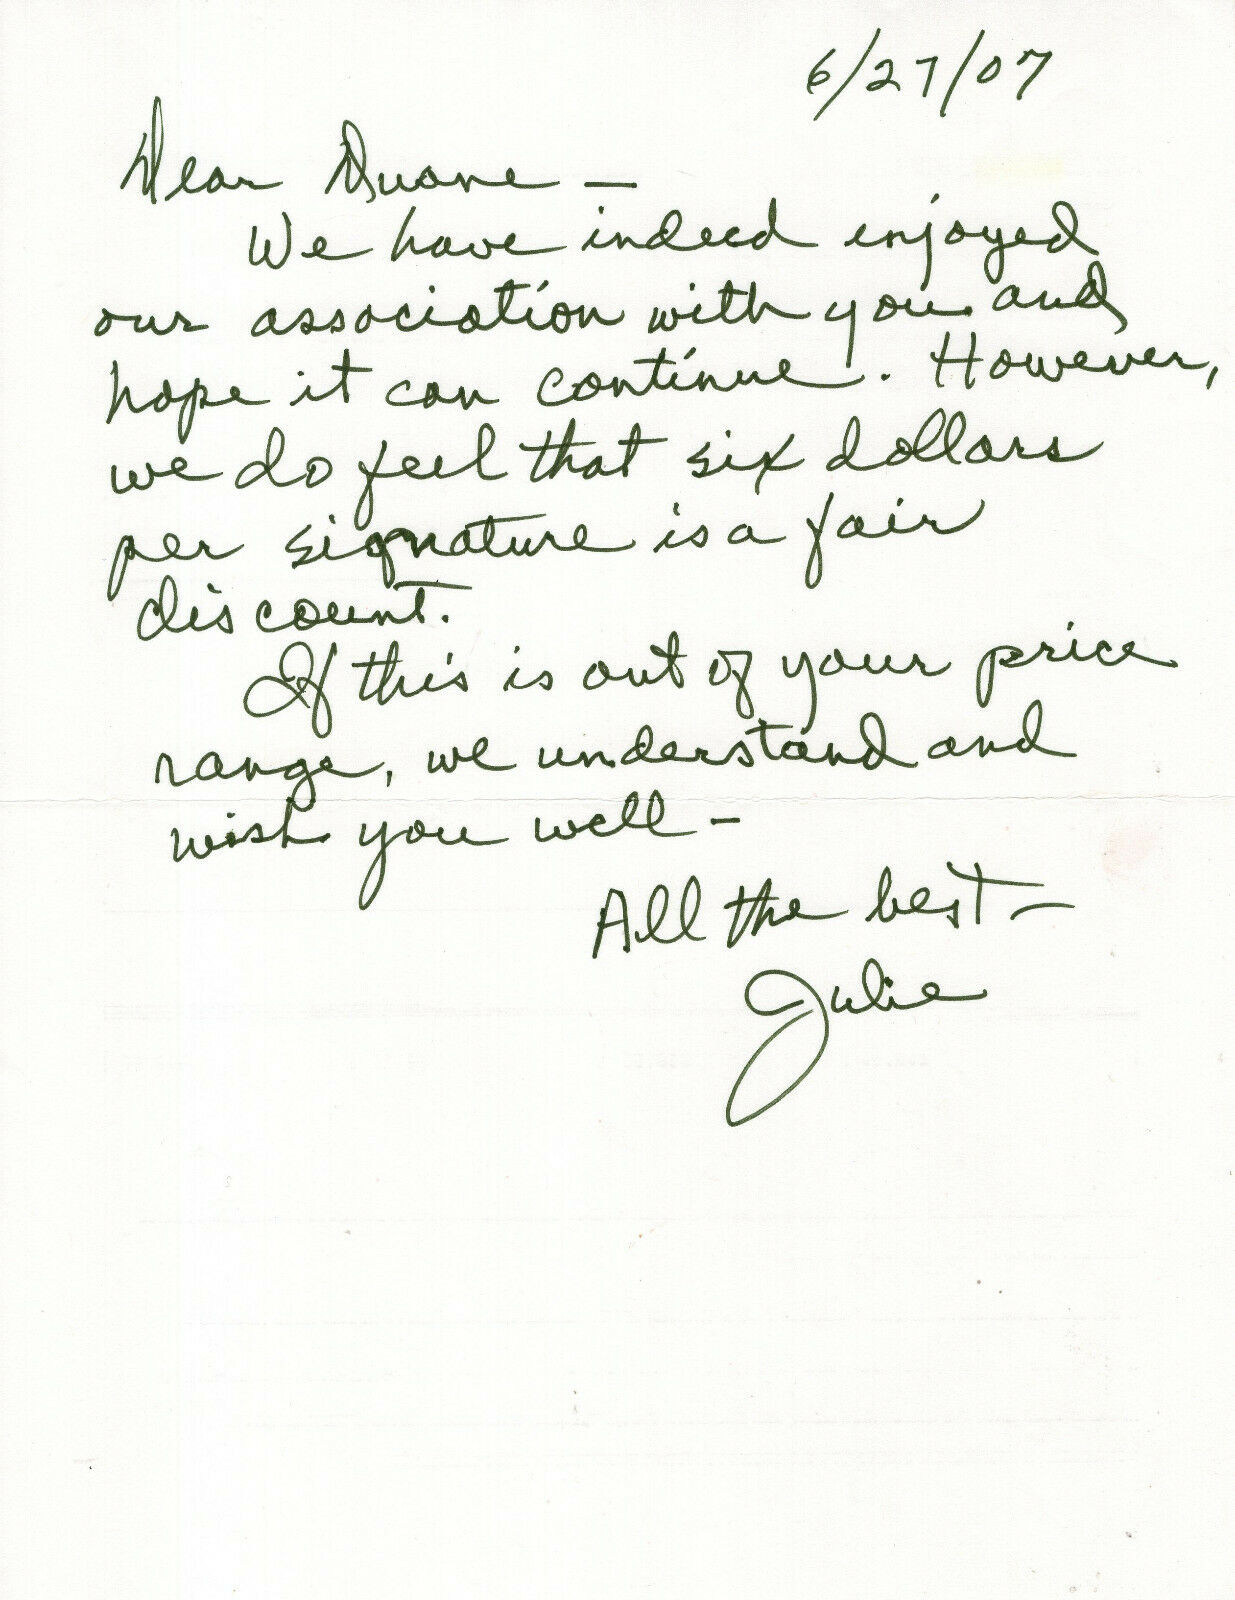 6/27/07
Dear Duane —
We have indeed enjoyed
our association with you and
hope it can continue. However,
we do feel that six dollars
per signature is a fair
discount.
If this is out of your price
range, we understand and
wish you well —
All the best —
Julie